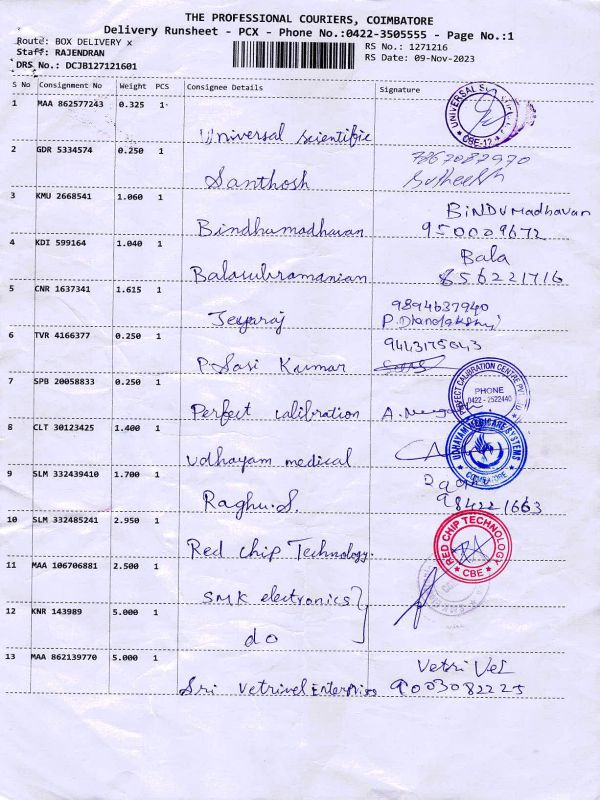 THE PROFESSIONAL COURIERS, COIMBATORE
Delivery Runsheet - PCX - Phone No.:0422-3505555 - Page No.:1
Route: BOX DELIVERY x
Staff: RAJENDRAN
DRS No.: DCJB127121601
RS No.: 1271216
RS Date: 09-Nov-2023
S No Consignment No Weight PCS Consignee Details Signature
1 MAA 862577243 0.325 1
Universal Scientific
UNIVERSAL
CBE-12
2 GDR 5334574 0.250 1
Santhosh
7867082970
3 KMU 2668541 1.060 1
Bindhumadhavan
BiNDUMadhavan
950009672
4 KDI 599164 1.040 1
Balasubramanian
Bala
856221716
5 CNR 1637341 1.615 1
Jeyaraj
9894637940
6 TVR 4166377 0.250 1
P.Sasi Kumar
9443175043
7 SPB 20058833 0.250 1
Perfect calibration
PERFECT CALIBRATION CENTRE PVT
PHONE
0422 - 2522440
8 CLT 30123425 1.400 1
Udhayam medical
UDHAYAM MEDICARE SYSTEMS
COIMBATORE
9 SLM 332439410 1.700 1
Raghu.S.
984221663
10 SLM 332485241 2.950 1
Red chip Technology.
RED CHIP TECHNOLOGY
CBE
11 MAA 106706881 2.500 1
SMK electronics
12 KNR 143989 5.000 1
do
13 MAA 862139770 5.000 1
Sri Vetrivel Enterprises
Vetri Vel
9003082225